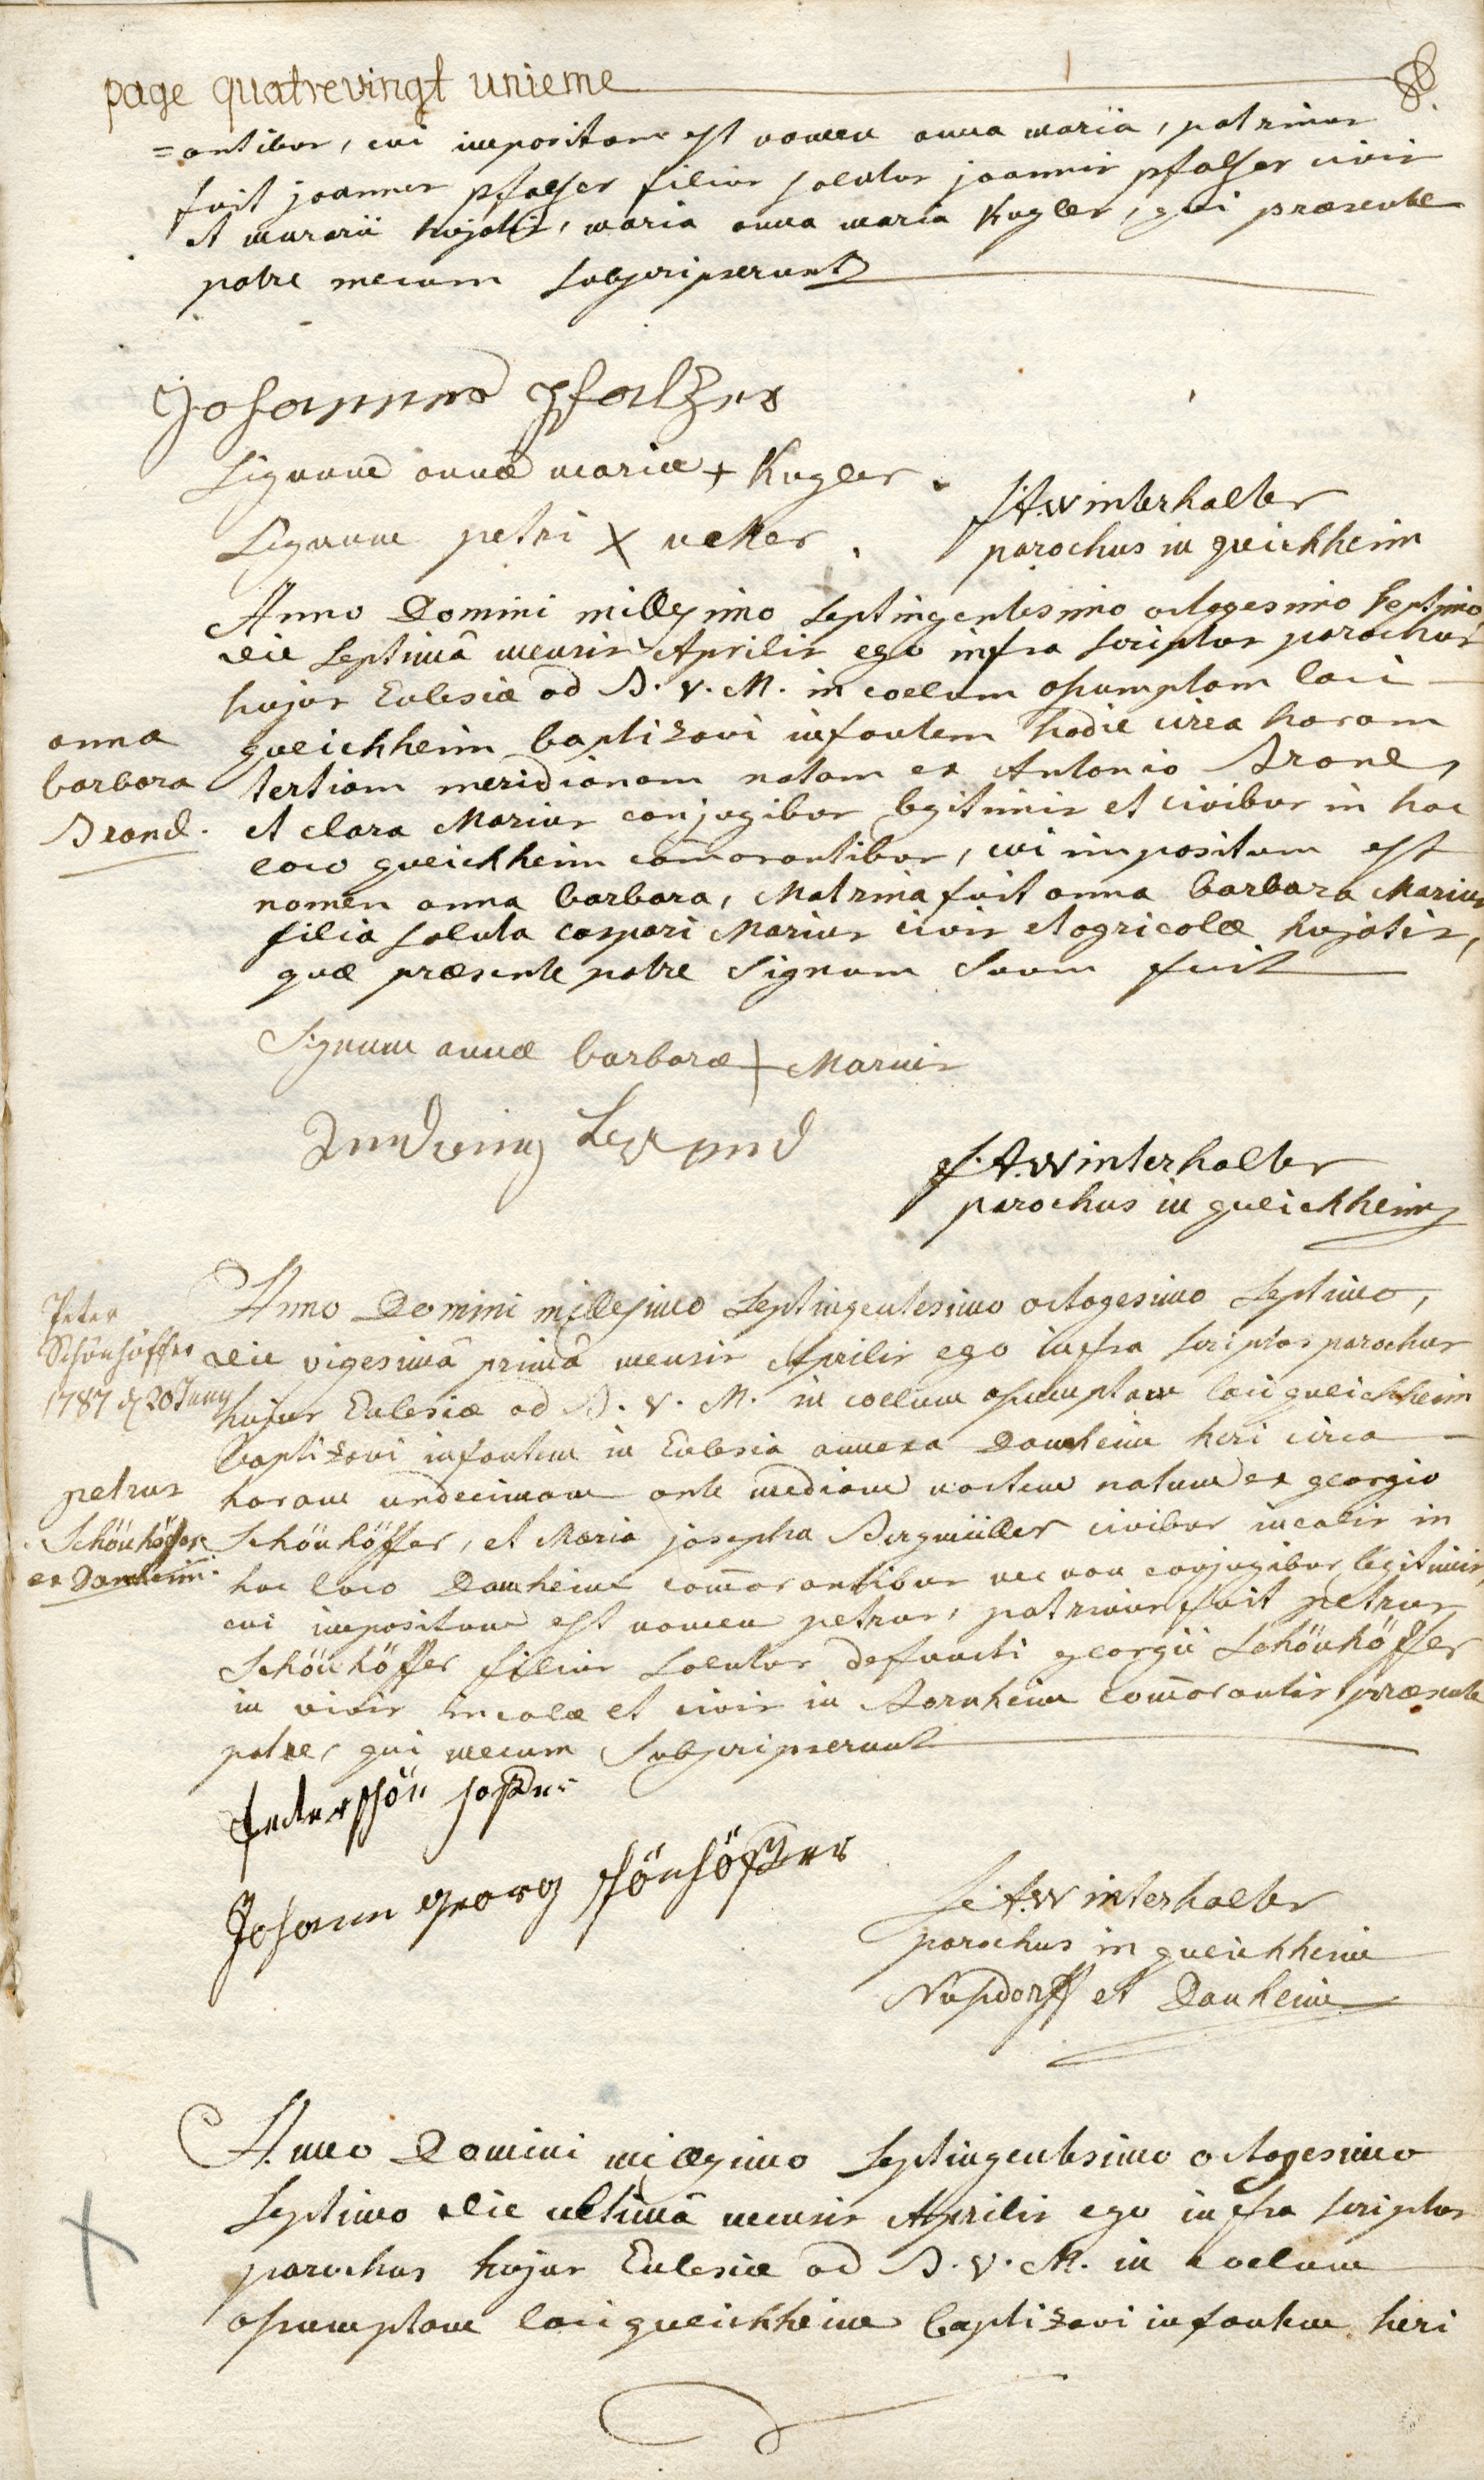 page quatrevingt unieme
=antibus, cui impositum est nomen anna maria, patrinus
fuit joannes pfalser filius solutus joannis pfalser civis
et murarii hujatis, maria anna maria Kugler, qui præsente
patre mecum subscripserunt
Johannes Pfaltzer
Signum annæ mariæ + Kugler.
Signum petri X ucker.
f.A. winterhalter
parochus in queichheim
Anno Domini millesimo septingentesimo octogesimo septimo,
die septimâ mensis Aprilis ego infra scriptus parochus
hujus Eclesiæ ad B. V. M. in coelum assumptam loci
queichheim baptizavi infantem hodie circa horam
tertiam meridianam natam ex Antonio Brand,
et clara Marius conjugibus legitimis et civibus in hoc
loco queichheim com̄orantibus, cui impositum est
nomen anna barbara, Matrina fuit anna barbara Marius
filia soluta caspari Marius civis et agricolæ hujatis,
quæ præsente patre signum suum fecit
anna
barbara
Brand.
Signum annæ barbaræ + Marius
f. A. winterhalter
parochus in queichheim
Anno Domini millesimo septingentesimo octogesimo septimo,
die vigesimâ primâ mensis Aprilis ego infra scriptus parochus
hujus Eclesiæ ad B. V. M. in coelum assumptam loci queichheim
baptizavi infantem in Eclesia annexa Damheim heri circa
horam undecimam ante mediam noctem natum ex georgio
Schönhöffer, et Maria josepha Bergmüller civibus incolis in
hoc loco Damheim com̄orantibus nec non conjugibus legitimis
cui impositum est nomen petrus, patrinus fuit petrus
Schönhöffer filius solutus defuncti georgii Schönhöffer
in vivis incolæ et civis in Bornheim com̄orantis, præsente
patre, qui mecum subscripserunt
Peter
Schönhöffer
1787 d 20 Juny
petrus
Schönhöffer
ex Damheim.
Peter schön höffer
Johann Georg schönhöffer
f. A. winterhalter
parochus in queichheim
Nusdorff et Damheim
Anno Domini millesimo septingentesimo octogesimo
septimo die ultimâ mensis Aprilis ego infra scriptus
parochus hujus Eclesiæ ad B. V. M. in coelum
assumptam loci queichheim baptizavi infantem heri